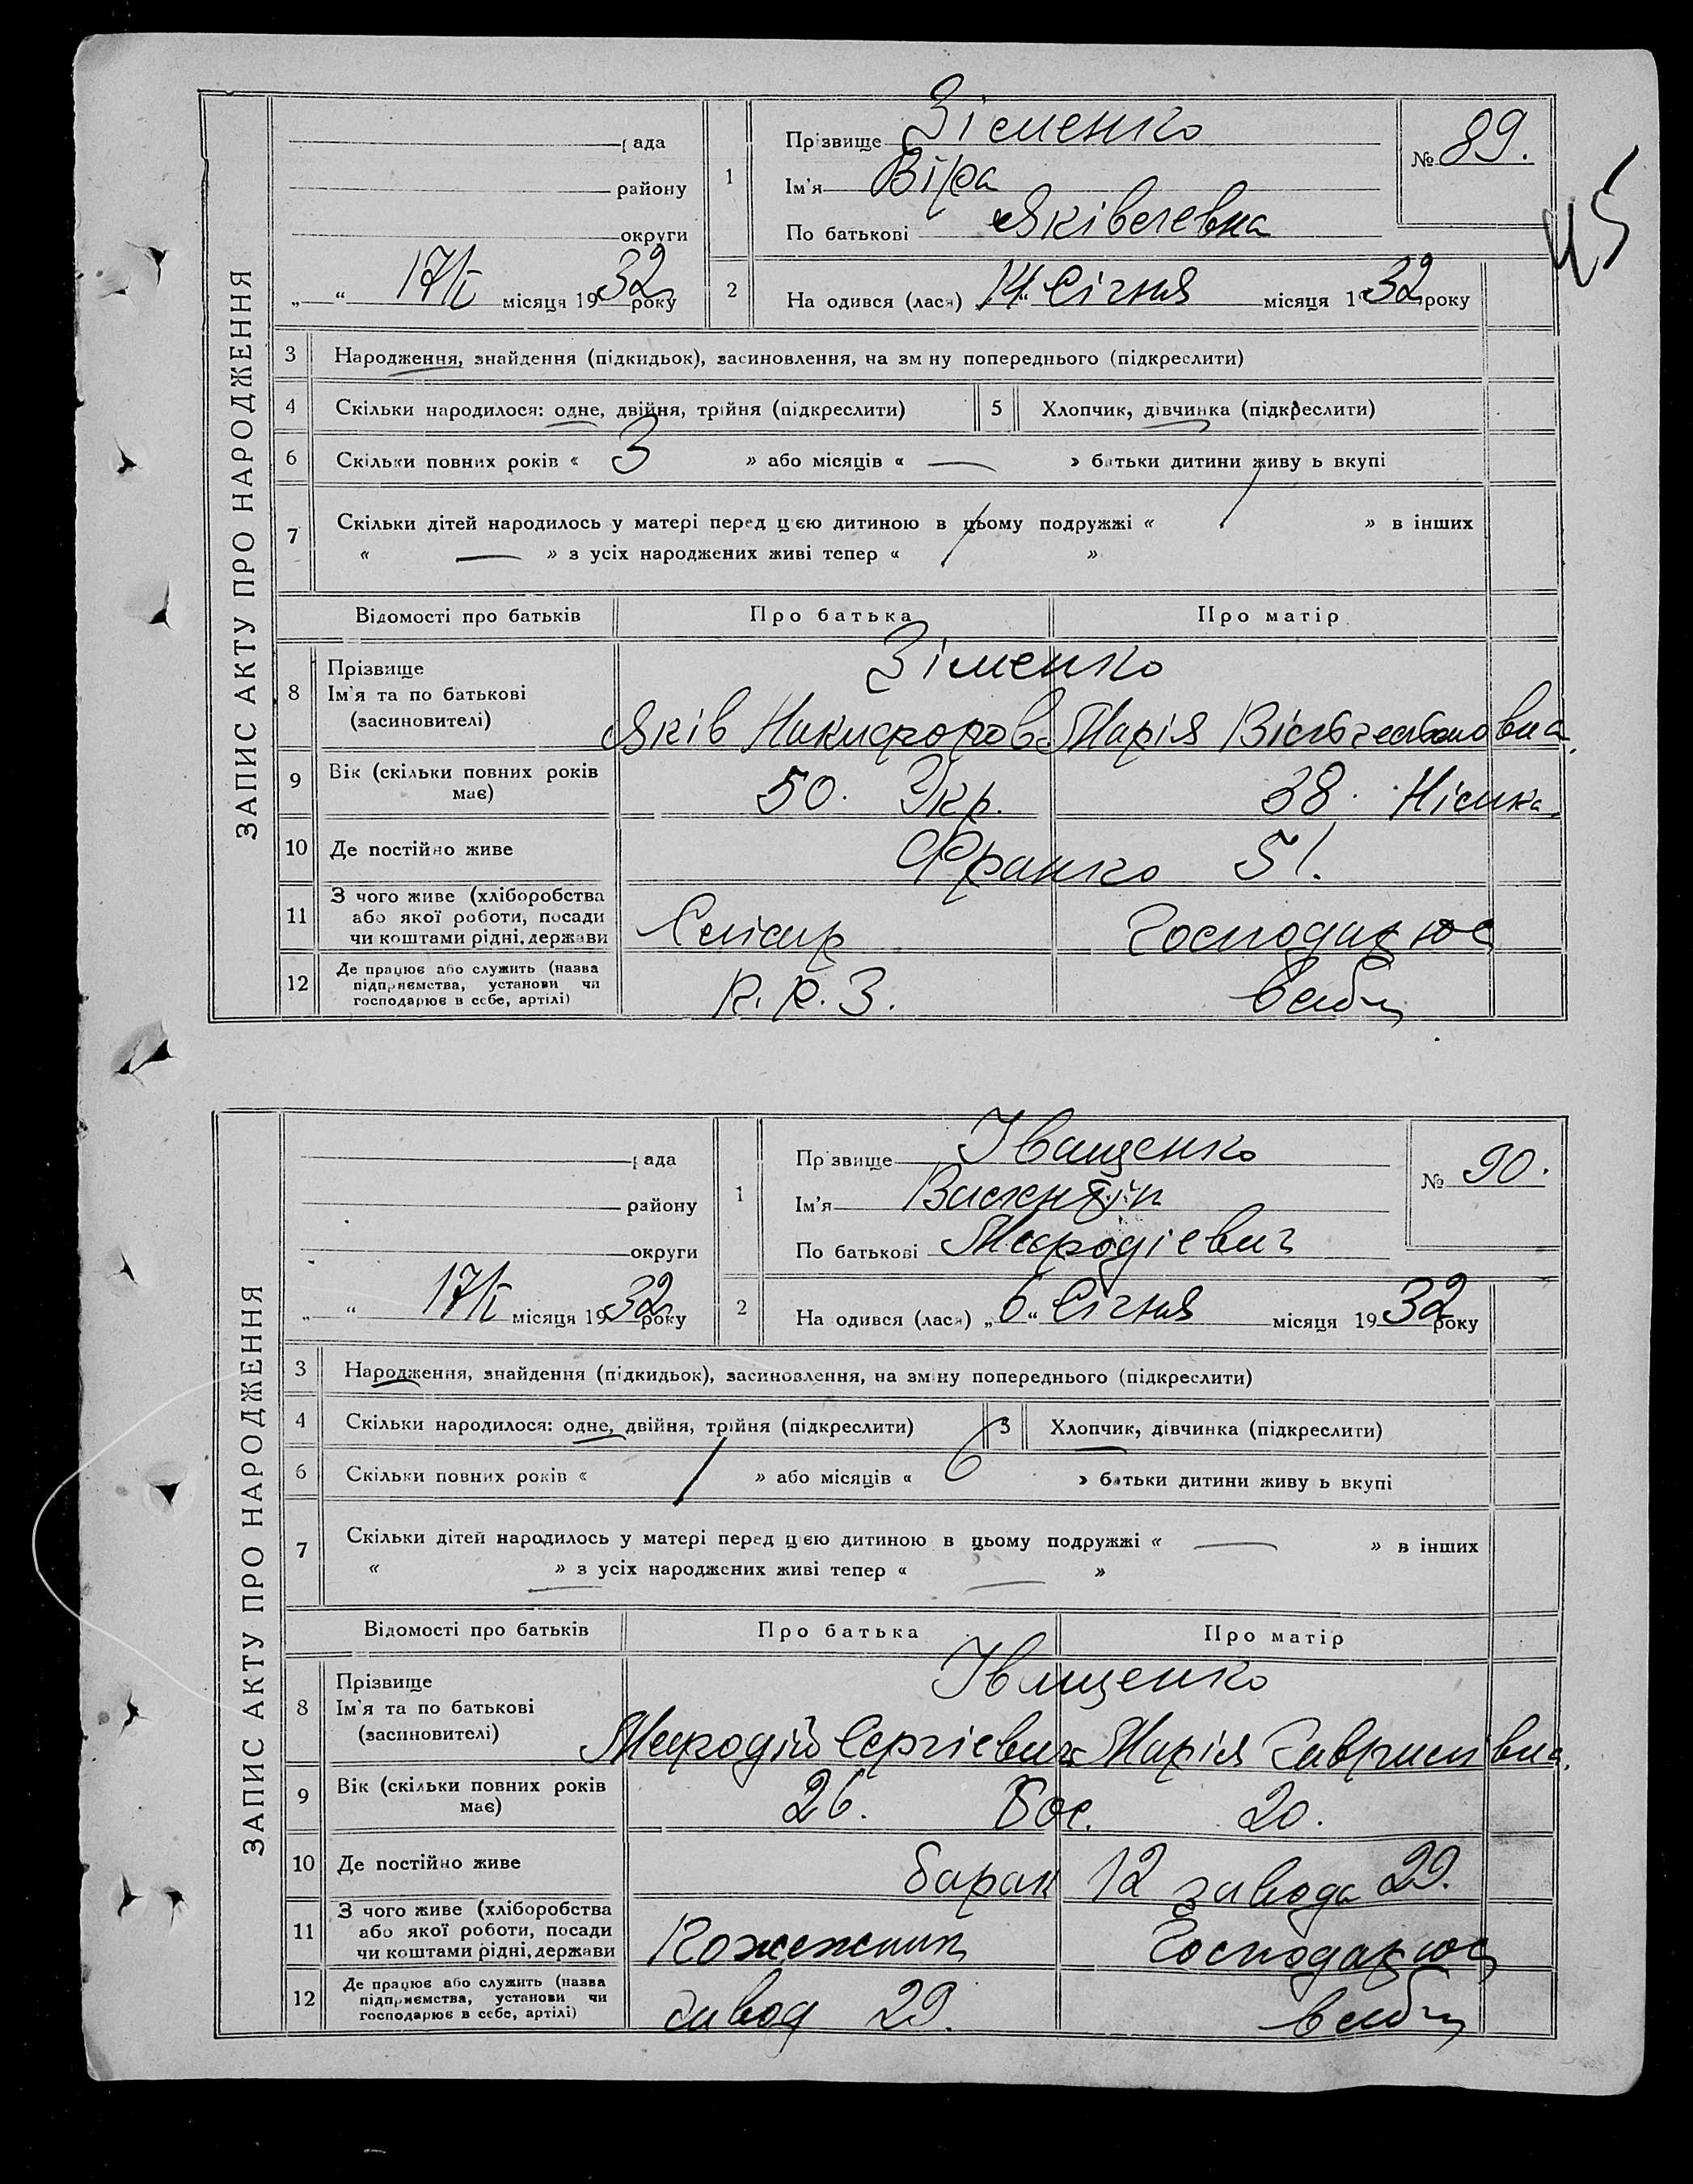 ЗАПИС АКТУ ПРО НАРОДЖЕННЯ
рада
району
округи
„ “ 17/I місяця 1932 року
1
Прізвище Зіменко
Ім'я Віра
По батькові Яківлевна
№ 89.
45
2 На одився (лася) „14“ Січня місяця 1932 року
3 Народження, знайдення (підкидьок), засиновлення, на зміну попереднього (підкреслити)
4 Скільки народилося: одне, двійня, трійня (підкреслити) 5 Хлопчик, дівчинка (підкреслити)
6 Скільки повних років « 3 » або місяців « — » батьки дитини живуть вкупі
7 Скільки дітей народилось у матері перед цією дитиною в цьому подружжі « / » в інших
« — » з усіх народжених живі тепер « / »
Відомості про батьків Про батька Про матір
8 Прізвище Ім'я та по батькові (засиновителі)
Зіменко
Яків Никифоров Марія
9 Вік (скільки повних років має) 50. Укр. 38. Німка.
10 Де постійно живе Франко 51.
11 З чого живе (хліборобства або якої роботи, посади чи коштами рідні, держави Слісар Господарює
12 Де працює або служить (назва підприємства, установи чи господарює в себе, артілі) К. К. З. в себе
ЗАПИС АКТУ ПРО НАРОДЖЕННЯ
рада
району
округи
„ “ 17/I місяця 1932 року
1
Прізвище Іващенко
Ім'я Валентін
По батькові Мефодіевич
№ 90.
2 На одився (лася) „6“ Січня місяця 1932 року
3 Народження, знайдення (підкидьок), засиновлення, на зміну попереднього (підкреслити)
4 Скільки народилося: одне, двійня, трійня (підкреслити) 5 Хлопчик, дівчинка (підкреслити)
6 Скільки повних років « / » або місяців « 6 » батьки дитини живуть вкупі
7 Скільки дітей народилось у матері перед цією дитиною в цьому подружжі « — » в інших
« — » з усіх народжених живі тепер « — »
Відомості про батьків Про батька Про матір
8 Прізвище Ім'я та по батькові (засиновителі)
Іващенко
Мефодій Сергіевич Марія Гаврилівна
9 Вік (скільки повних років має) 26. 20.
10 Де постійно живе барак 12 завода 29.
11 З чого живе (хліборобства або якої роботи, посади чи коштами рідні, держави Кожежник Господарює
12 Де працює або служить (назва підприємства, установи чи господарює в себе, артілі) завод 29. в себе